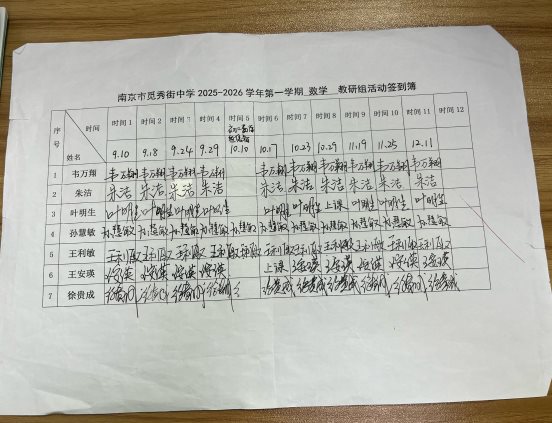 南京市觅秀街中学 2025-2026 学年第一学期 数学 教研组活动签到簿
序号 时间 姓名 时间 1 时间 2 时间 3 时间 4 时间 5 时间 6 时间 7 时间 8 时间 9 时间 10 时间 11 时间 12
9.10 9.18 9.24 9.29 10.10 10.17 10.23 10.29 11.19 11.25 12.11
1 韦万翔 韦万翔 韦万翔 韦万翔 韦万翔 韦万翔 韦万翔 韦万翔 韦万翔 韦万翔 韦万翔
2 朱洁 朱洁 朱洁 朱洁 朱洁 朱洁 朱洁 朱洁 朱洁 朱洁 朱洁
3 叶明生 叶明生 叶明生 叶明生 叶明生 叶明生 叶明生 上课 叶明生 叶明生 叶明生
4 孙慧敏 孙慧敏 孙慧敏 孙慧敏 孙慧敏 孙慧敏 孙慧敏 孙慧敏 孙慧敏 孙慧敏 孙慧敏 孙慧敏
5 王利敏 王利敏 王利敏 王利敏 王利敏 王利敏 王利敏 王利敏 王利敏 王利敏 王利敏 王利敏
6 王安瑛 上课
7 徐贵成 徐贵成 徐贵成 徐贵成 徐贵成